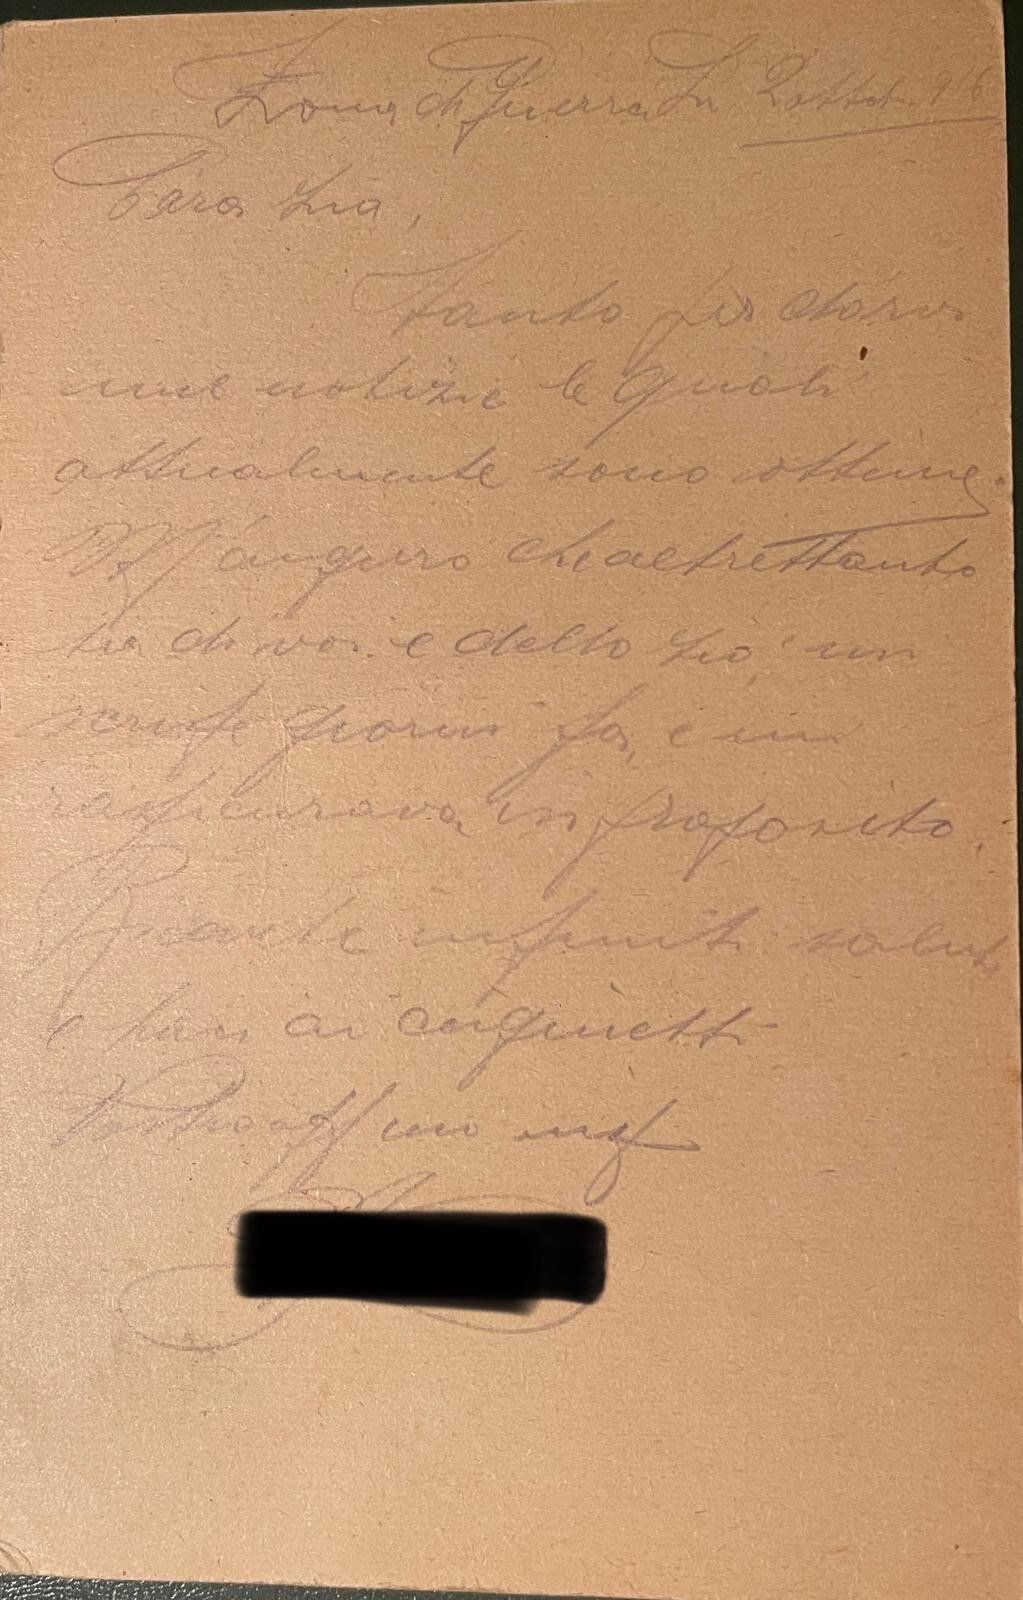 Zona di Guerra Lì 2 ottob. 916
Cara Zia,
Tanto per darvi
mie notizie le quali
attualmente sono ottime.
M'auguro che altrettanto
sia di voi e dello zio, mi
scrisse giorni fa, e mi
rassicurava in proposito.
Ricevete infiniti saluti
e baci ai cuginetti
Vostro aff mo nip